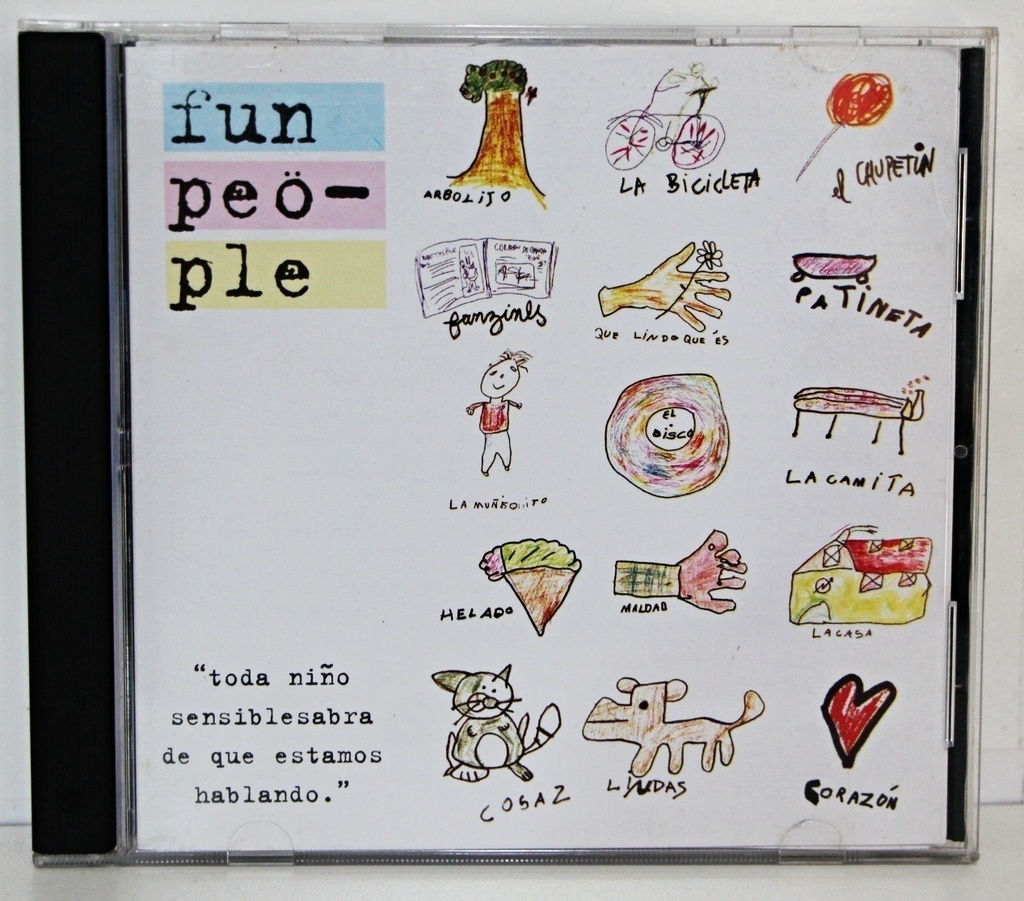 fun
peö-
ple
ARBOLITO
LA BICICLETA
el CHUPETiN
fanzines
QUE LINDO QUE ÉS
PATINETA
LA MUÑEQUITO
EL
DISCO
LA CAMITA
HELADO
MALDAD
LA CASA
COSAZ
LINDAS
CORAZÓN
“toda niño
sensiblesabra
de que estamos
hablando.”